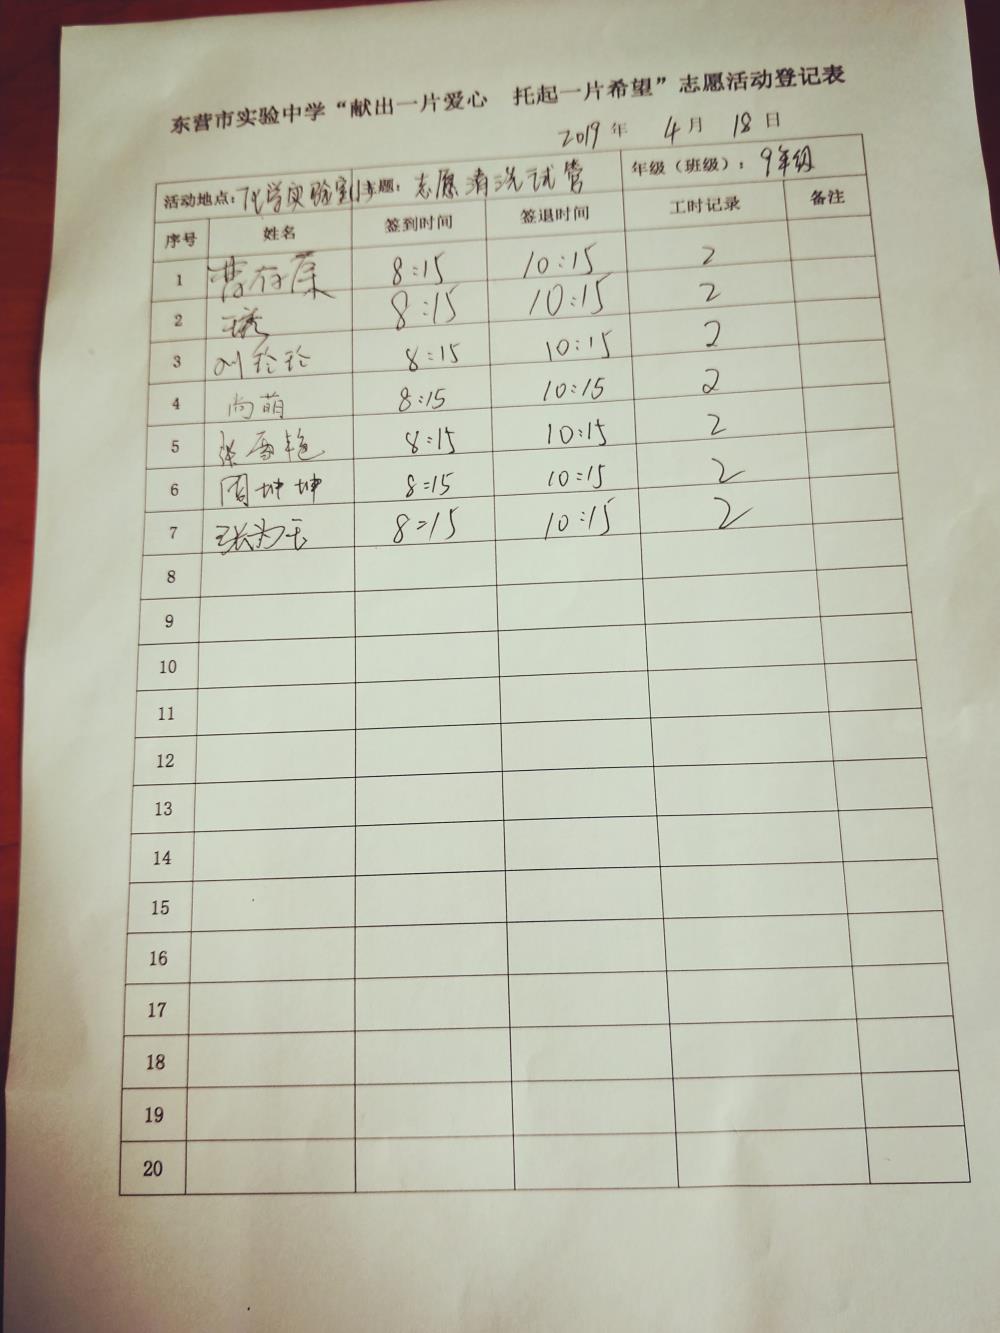 东营市实验中学“献出一片爱心 托起一片希望”志愿活动登记表
2019年 4月 18日
活动地点：化学实验室 主题：志愿清洗试管 年级（班级）：9年级
序号 姓名 签到时间 签退时间 工时记录 备注
1 8:15 10:15 2
2 8:15 10:15 2
3 刘玲玲 8:15 10:15 2
4 尚萌 8:15 10:15 2
5 张雪艳 8:15 10:15 2
6 周坤坤 8:15 10:15 2
7 8:15 10:15 2
8
9
10
11
12
13
14
15
16
17
18
19
20